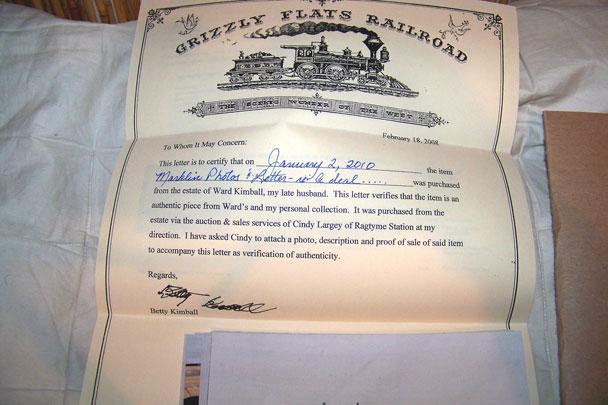 GRIZZLY FLATS RAILROAD
THE SCENIC WONDER OF THE WEST
February 18, 2008
To Whom It May Concern:
This letter is to certify that on January 2, 2010 the item
Marklin Photos & Letter - re a deal..... was purchased
from the estate of Ward Kimball, my late husband. This letter verifies that the item is an
authentic piece from Ward's and my personal collection. It was purchased from the
estate via the auction & sales services of Cindy Largey of Ragtyme Station at my
direction. I have asked Cindy to attach a photo, description and proof of sale of said item
to accompany this letter as verification of authenticity.
Regards,
Betty Kimball
Betty Kimball